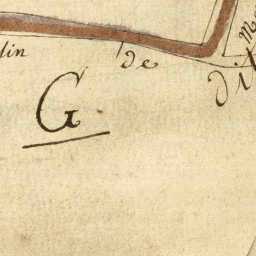 lin de dit
G.